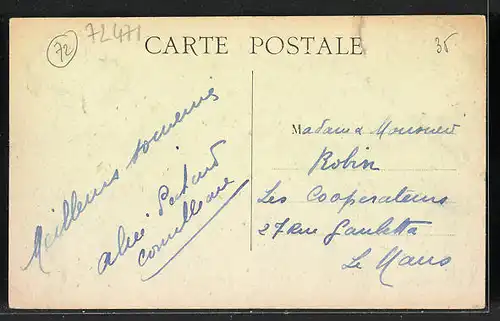 72
72471
35
CARTE POSTALE
Meilleurs souvenirs
Madame & Monsieur
Robin
Les Cooperateurs
27 Rue Gambetta
Le Mans